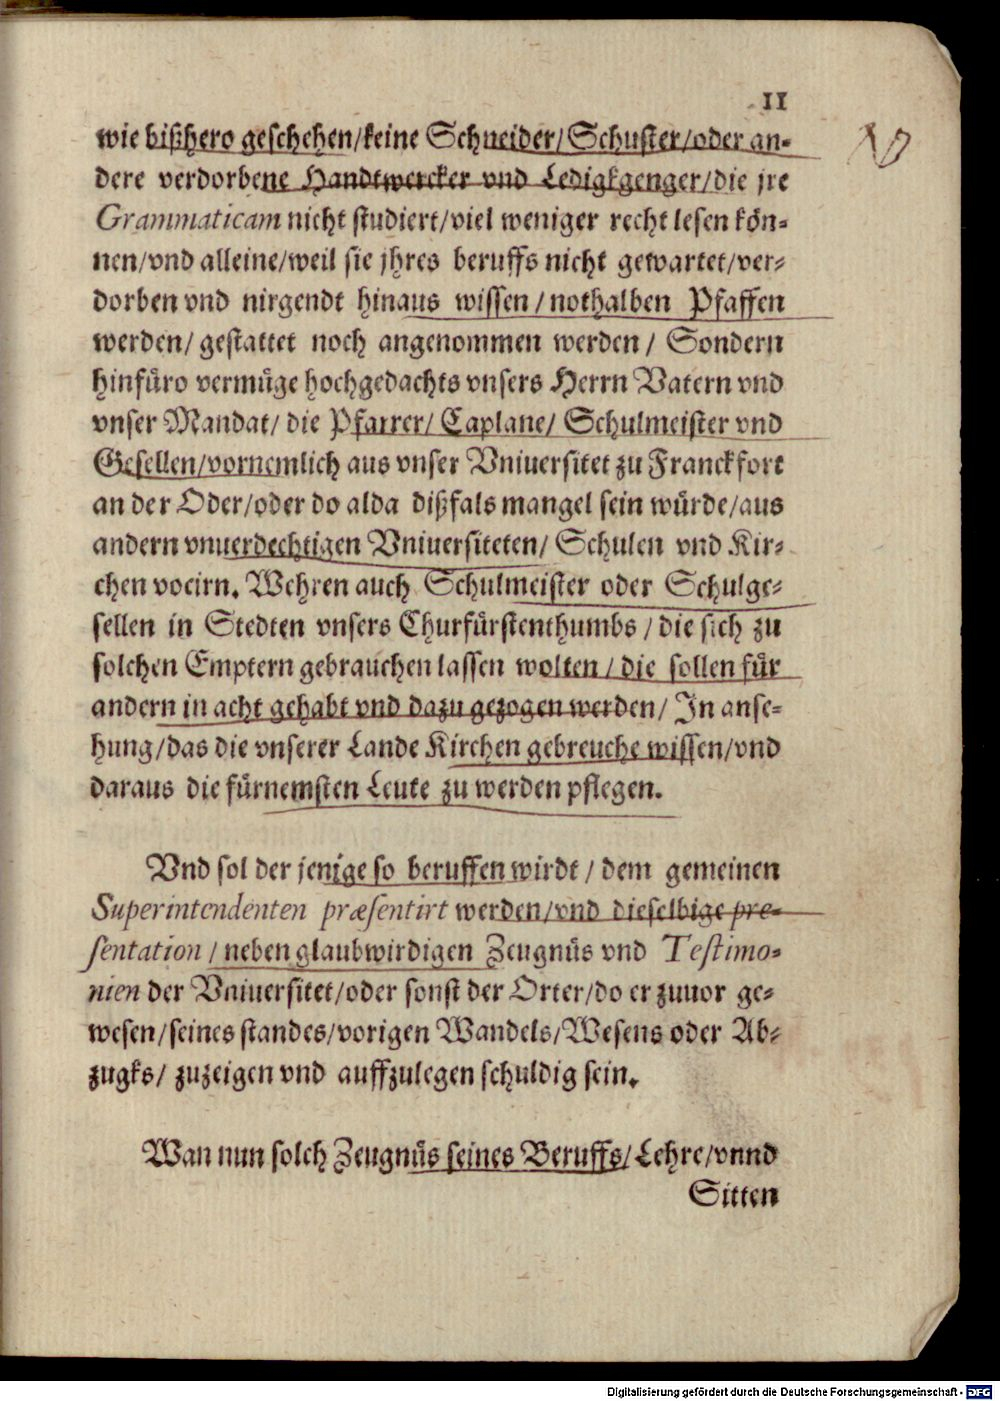 11
wie bißhero geschehen/keine Schneider/Schuster/oder an-
dere verdorbene Handtwercker vnd Ledigkgenger/die jre
Grammaticam nicht studiert/viel weniger recht lesen kön-
nen/vnd alleine/weil sie jhres beruffs nicht gewartet/ver-
dorben vnd nirgendt hinaus wissen/nothalben Pfaffen
werden/ gestattet noch angenommen werden/ Sondern
hinfüro vermüge hochgedachts vnsers Herrn Vatern vnd
vnser Mandat/ die Pfarrer/ Caplane/ Schulmeister vnd
Gesellen/vornemlich aus vnser Vniuersitet zu Franckfort
an der Oder/oder do alda dißfals mangel sein würde/aus
andern vnuerdechtigen Vniuersiteten/ Schulen vnd Kir-
chen vocirn. Wehren auch Schulmeister oder Schulge-
sellen in Stedten vnsers Churfürstenthumbs/die sich zu
solchen Emptern gebrauchen lassen wolten/die sollen für
andern in acht gehabt vnd dazu gezogen werden/ In anse-
hung/das die vnserer Lande Kirchen gebreuche wissen/vnd
daraus die fürnemsten Leute zu werden pflegen.
Vnd sol der jenige so beruffen wirdt/dem gemeinen
Superintendenten præsentirt werden/vnd dieselbige pre-
sentation/neben glaubwirdigen Zeugnüs vnd Testimo-
nien der Vniuersitet/oder sonst der Orter/do er zuuor ge-
wesen/seines standes/vorigen Wandels/Wesens oder Ab-
zugks/ zuzeigen vnd auffzulegen schuldig sein.
Wan nun solch Zeugnüs seines Beruffs/Lehre/vnnd
Sitten
Digitalisierung gefördert durch die Deutsche Forschungsgemeinschaft - DFG